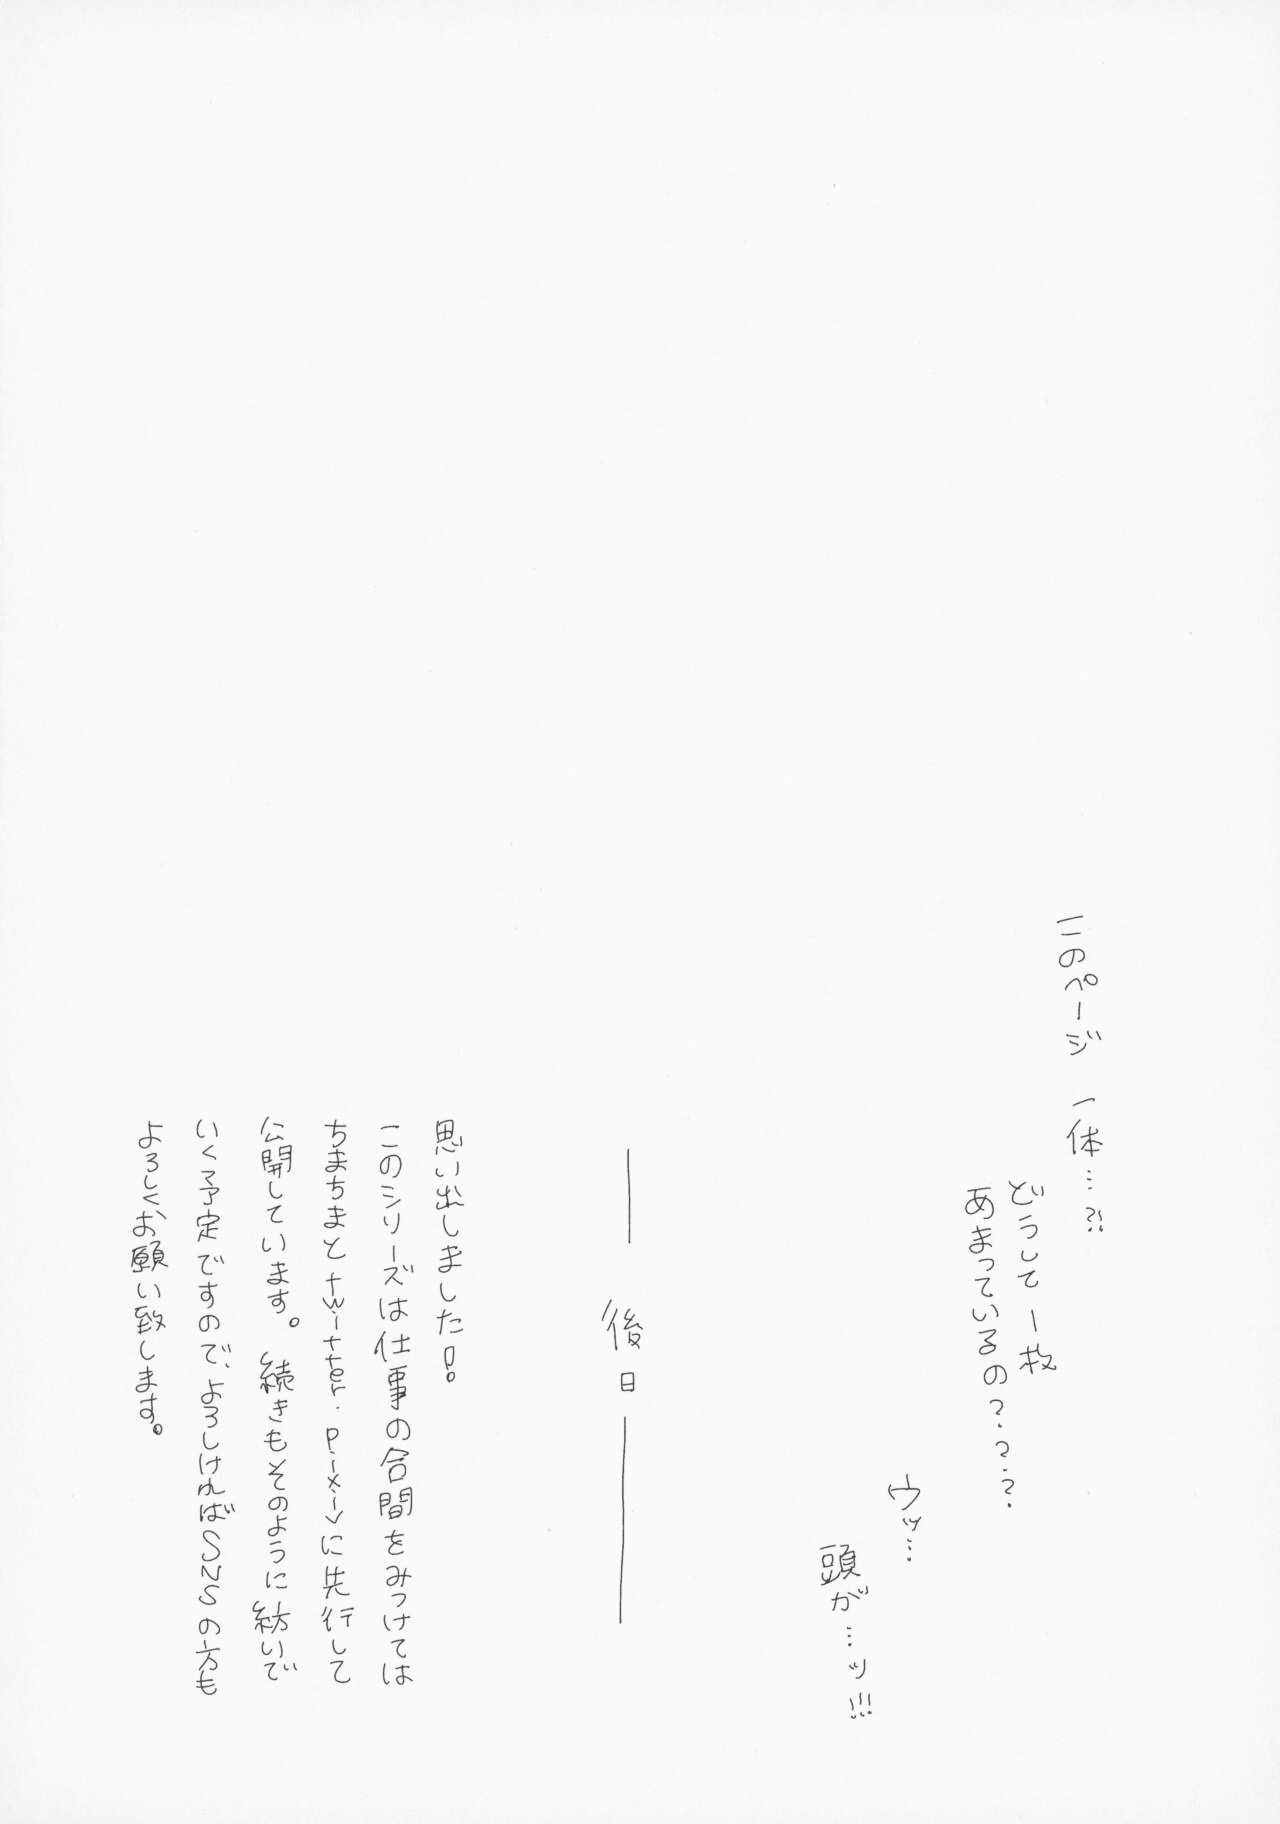 このページ 一体…?!
どうして一枚
あまっているの?.?.?.
ウッ…
頭が…ッ!!!
── 後日 ──
思い出しました!
このシリーズは仕事の合間をみつけては
ちまちまとtwitter.pixivに先行して
公開しています。続きもそのように紡いで
いく予定ですので、よろしければSNSの方も
よろしくお願い致します。